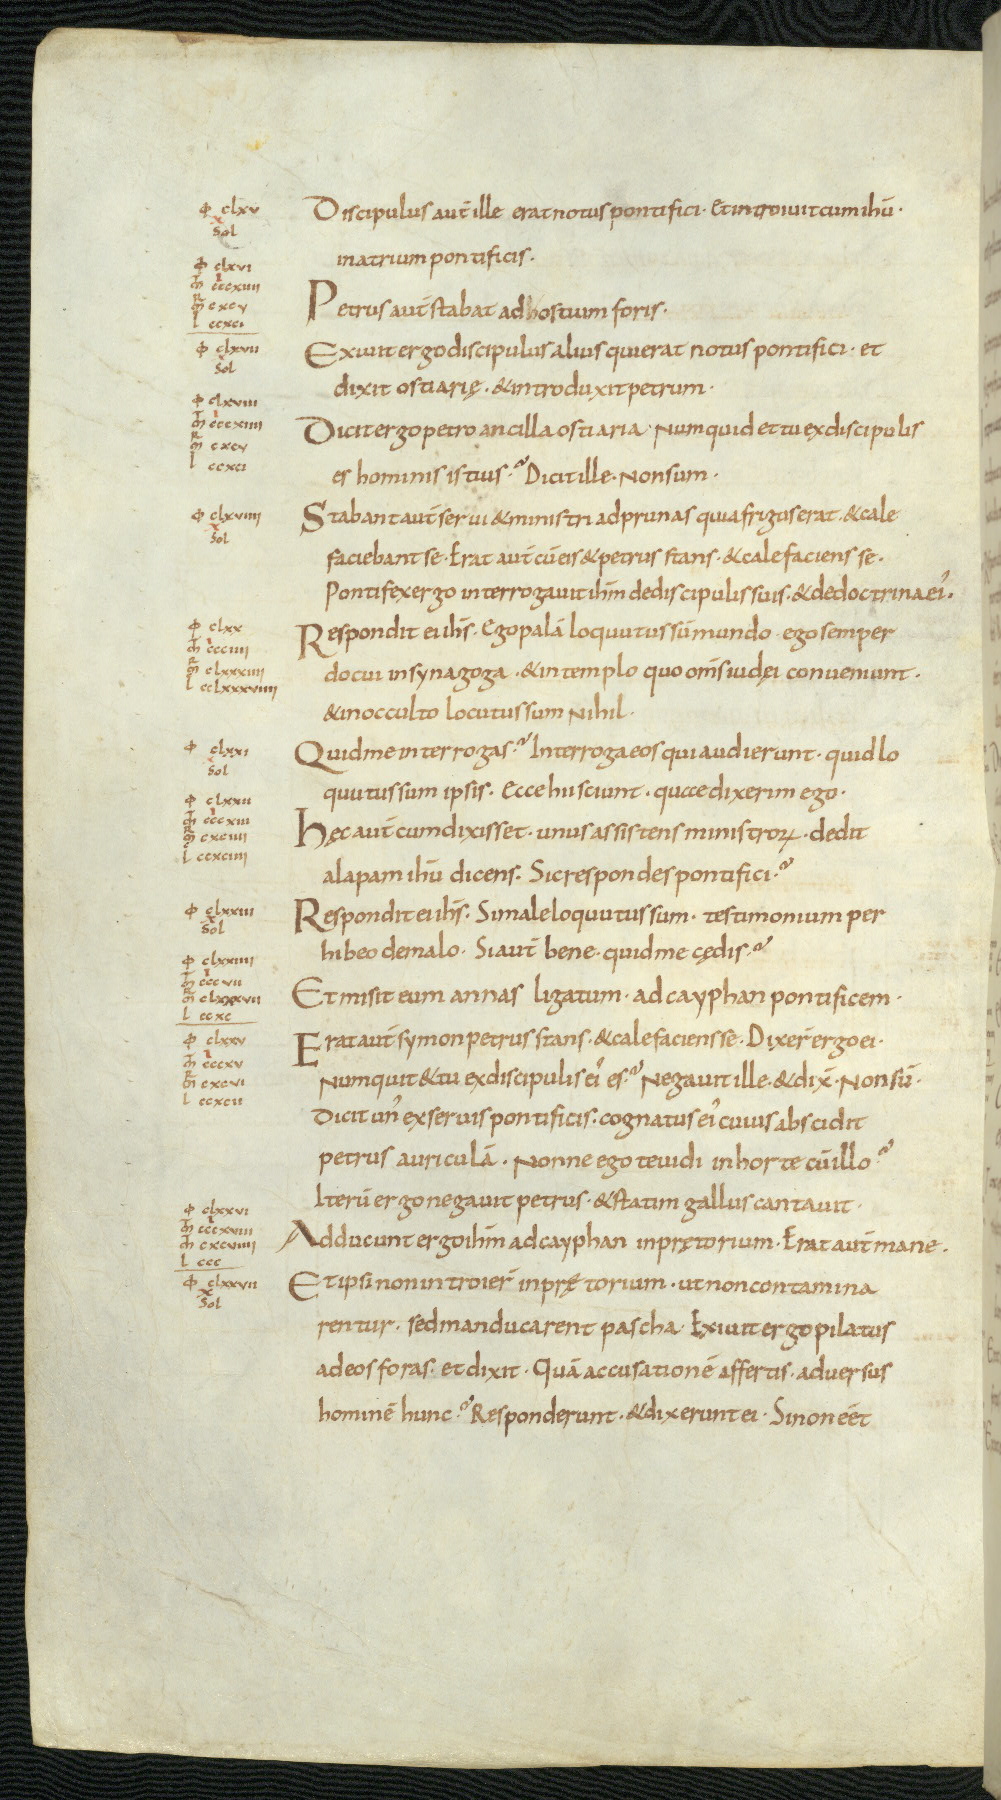 Φ clxv
x
Sol
Discipulus aut̄ ille erat notus pontifici· Et introiuit cum ihū·
in atrium pontificis·
Φ clxvi
Petrus aut̄ stabat ad hostium foris·
l ccxci
Φ clxvii
x
Sol
Exiuit ergo discipulus alius qui erat notus pontifici· et
dixit ostiarię· & introduxit petrum·
Φ clxviii
Dicit ergo petro ancilla ostiaria· Numquid et tu ex discipulis
l ccxci
es hominis istius· Dicit ille· Non sum·
Φ clxviiii
x
Sol
Stabant aut̄ serui & ministri ad prunas quia frigus erat· & cale
faciebant se· Erat aut̄ cū eis & petrus stans· & calefaciens se·
Pontifex ergo interrogauit ihm̄ de discipulis suis· & de doctrina ei᾿·
Φ clxx
l cclxxxviiii
Respondit ei ihs̄· Ego palā loquutus sū mundo· ego semper
docui in synagoga· & in templo quo om̄s iudęi conueniunt·
& in occulto locutus sum nihil·
Φ clxxi
x
Sol
Quid me interrogas· Interroga eos qui audierunt· quid lo
quutus sum ipsis· Ecce hii sciunt· quae dixerim ego·
Φ clxxii
l ccxciiii
Hęc aut̄ cum dixisset· unus assistens ministroꝝ· dedit
alapam ihū dicens· Sic respondes pontifici·
Φ clxxiii
x
Sol
Respondit ei ihs̄· Si male loquutus sum· testimonium per
hibeo de malo· Si aut̄ bene· quid me cędis·
Φ clxxiiii
l ccxc
Et misit eum annas ligatum· ad cayphan pontificem·
Φ clxxv
l ccxcii
Erat aut̄ symon petrus stans· & calefaciens se· Dixer̄ ergo ei·
Numquit & tu ex discipulis ei᾿ es· Negauit ille· & dix̄· Non sū·
Dicit un᾿ ex seruis pontificis· cognatus ei᾿ cuius abscidit
petrus auriculā· Nonne ego te uidi in horte cū illo
Iterū ergo negauit petrus· & statim gallus cantauit·
Φ clxxvi
l ccc
Adducunt ergo ihm̄ ad cayphan in prętorium· Erat aut̄ mane·
Φ clxxvii
x
Sol
Et ipsi non introier̄ in prętorium· ut non contamina
rentur· sed manducarent pascha· Exiuit ergo pilatus
ad eos foras· et dixit· Quā accusationē affertis· aduersus
hominē hunc· Responderunt· & dixerunt ei· Si non eēt